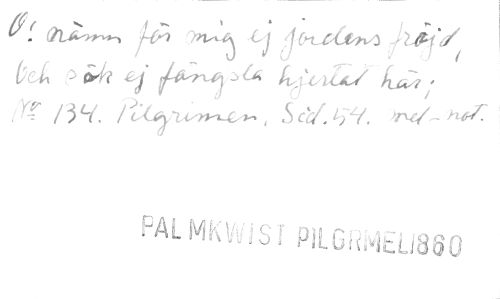 O! nämn för mig ej jordens fröjd,
Och sök ej fängsla hjertat här;
No 134. Pilgrimen, Sid. 54. med not.
PALMKWIST PILGRMEL1860